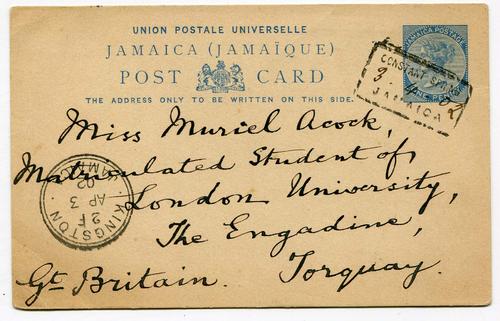 UNION POSTALE UNIVERSELLE
JAMAICA (JAMAÏQUE)
POST CARD
THE ADDRESS ONLY TO BE WRITTEN ON THIS SIDE.
JAMAICA POSTAGE
CONSTANT SPRING
3 4 02
JAMAICA
Miss Muriel Acock,
Matriculated Student of
London University,
The Engadine,
Torquay.
Gt. Britain.
KINGSTON
2 F
AP 3
02